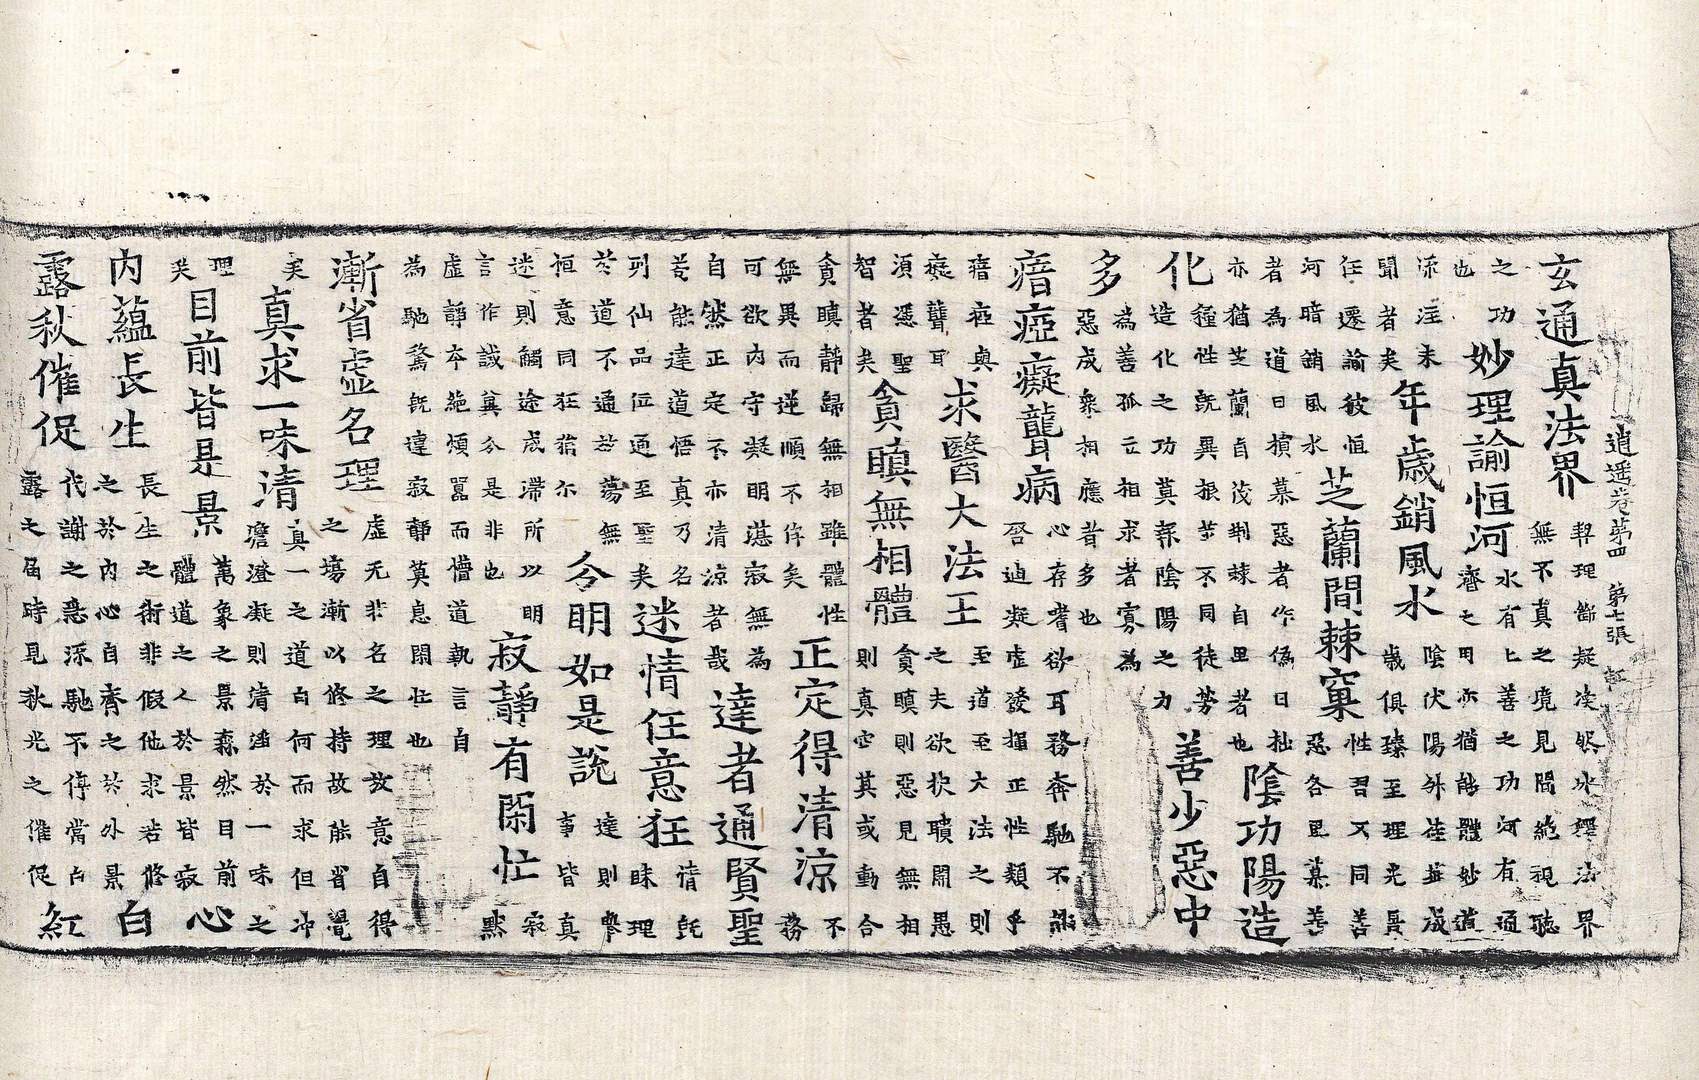 逍遥卷第四 第七張
玄通真法界
契理斷疑渙然氷釋法界
無不真之境見聞絶視聽
之功
也
妙理諭恒河
水有七善之功河有通
濟之用亦猶能體妙道
深注未
聞者矣
年歲銷風水
陰伏陽升徒益成
歲俱臻至理究竟
任遷諭彼恒
河暗銷風水
芝蘭間棘窠
性習不同善
惡各異慕善
者為道日損慕惡者作偽日拙
亦猶芝蘭自茂荆棘自里者也
陰功陽造
化
種性既異根苗不同徒勞
造化之功莫報陰陽之力
善少惡中
多
為善孤立相求者寡為
惡成衆相應者多也
瘖瘂癡聾病
心存嗜欲耳務奔馳不能
啓迪凝虛發揮正性類乎
瘖瘂與
癡聾耳
求醫大法王
至道至大法之則
之夫欲抉聵開愚
須憑聖
智者矣
貪瞋無相體
貪瞋則惡見無相
則真空其或動合
貪瞋靜歸無相雖體性
無異而逆順不侔矣
正定得清涼
不
務
可欲内守凝明湛寂無為
自然正定不亦清涼者哉
達者通賢聖
苦能達道悟真乃名
列仙品位通至聖矣
迷情任意狂
情既
昧理
苦道不通苦蕩無
恒意同狂猖尔
令明如是說
達則舉
事皆真
迷則觸途成滯所以明
言作誠冀今是非也
寂靜有閑忙
寂
默
虛靜本絶煩囂而懵道執言自
為馳騖既違寂靜莫息閑忙也
漸省虛名理
虛无非名之理故意自得
之場漸以修持故能省覺
矣
真求一味清
真一之道自何而求但冲
澹澄凝則清滋於一味之
理
矣
目前皆是景
萬象之景森然目前
體道之人於景皆寂
心
内蘊長生
長生之術非假他求若修
之於内心自齊之於外景
白
露秋催促
代謝之惑深馳不停當白
露之届時見秋光之催促
紅